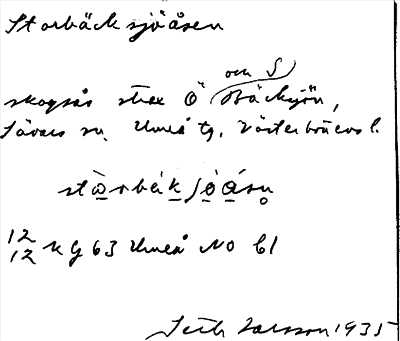 Storbäcksjöåsen
och S
skogsås strax Ö Bäcksjön,
Sävars sn. Umeå tg. Västerbottens l.
stòrbäkʃöåsn̥
12/12 KG 63 Umeå NO b1
Seth Larsson 1935